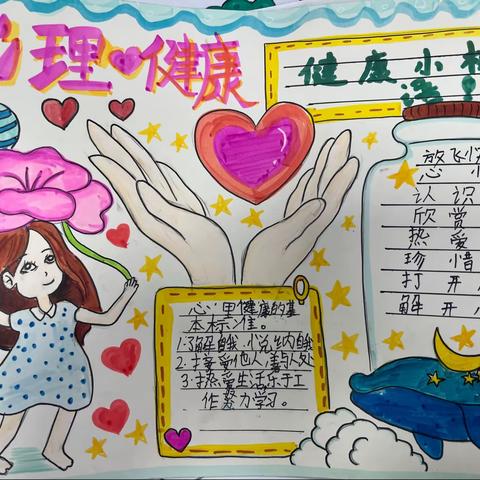 心理健康
健康小
放飞
心
认识
欣赏
热爱
珍惜
打开
解开
心里健康的基
本标准。
1.了解自我、悦纳自我
2.接受他人,善与人处
3.热爱生活乐于工
作努力学习。